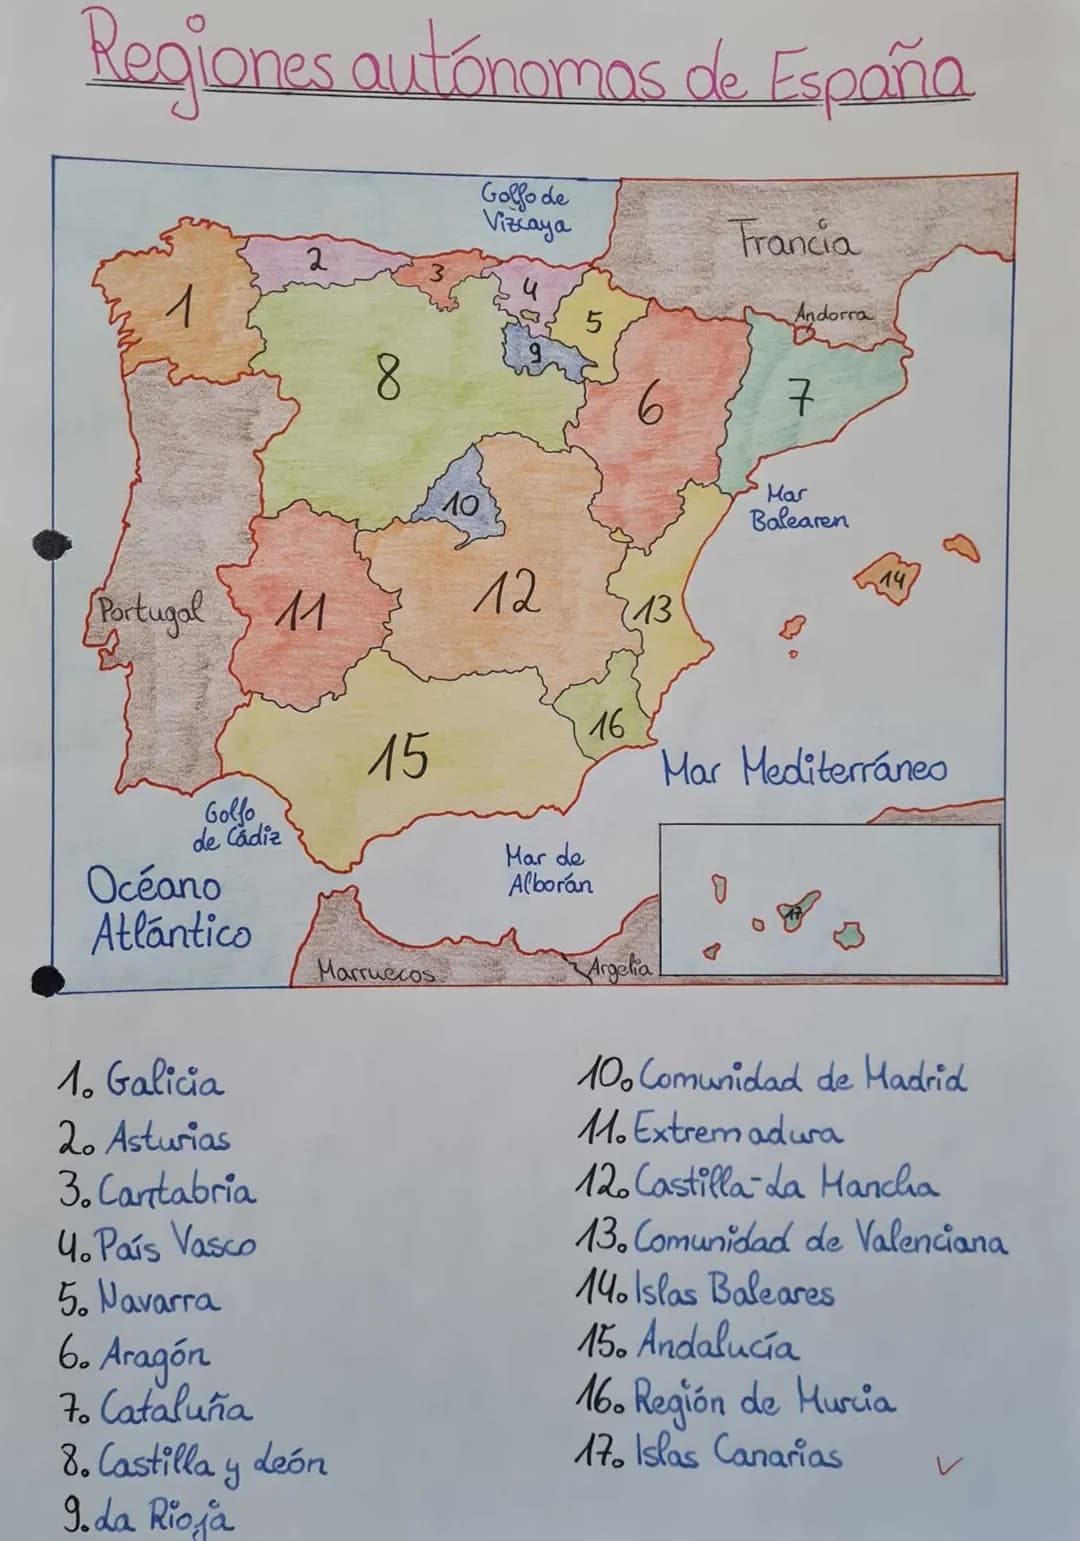 Regiones autónomas de España
Golfo de
Vizcaya
Francia
Andorra
1
2
3
4
5
6
7
8
9
10
11
12
13
14
15
16
17
Mar
Balearen
Portugal
Mar Mediterráneo
Golfo
de Cádiz
Mar de
Alborán
Océano
Atlántico
Marruecos
Argelia
1. Galicia
2. Asturias
3. Cantabria
4. País Vasco
5. Navarra
6. Aragón
7. Cataluña
8. Castilla y León
9. La Rioja
10. Comunidad de Madrid
11. Extremadura
12. Castilla-La Mancha
13. Comunidad de Valenciana
14. Islas Baleares
15. Andalucía
16. Región de Murcia
17. Islas Canarias